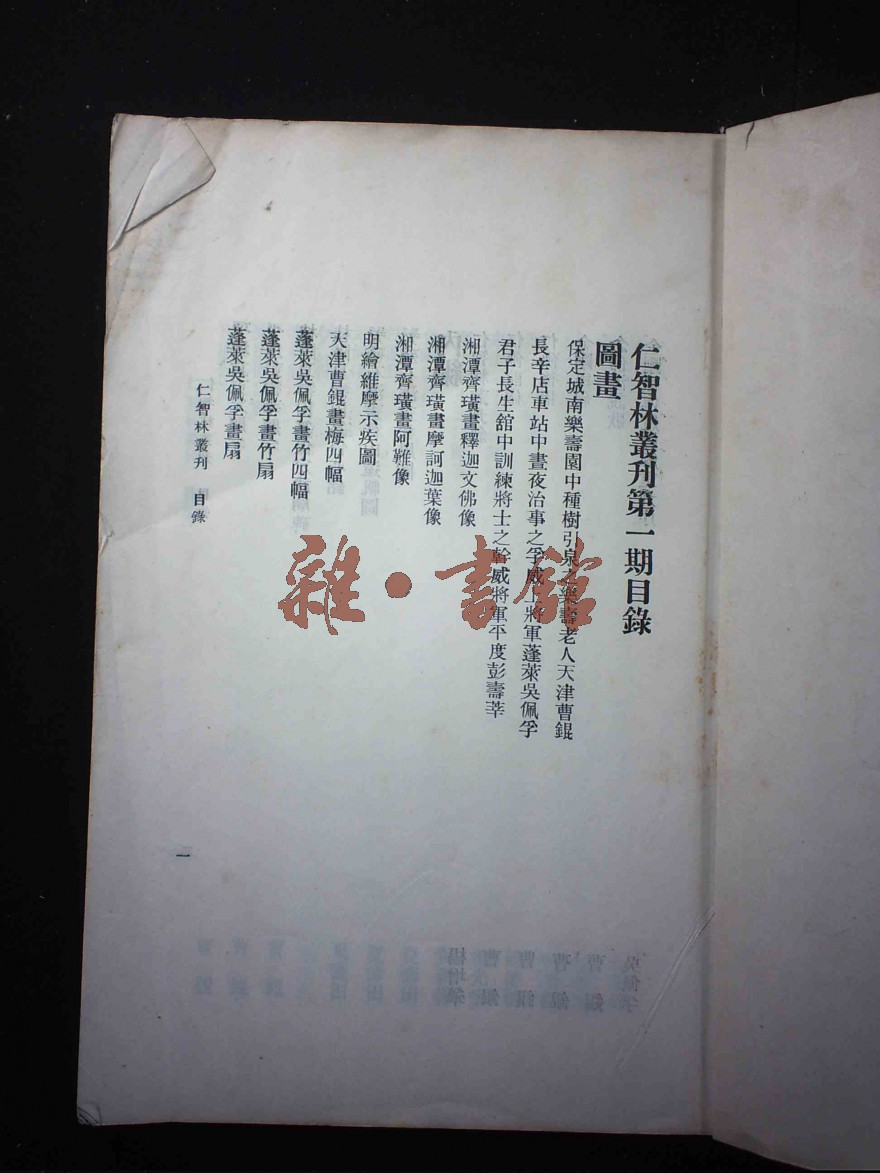 仁智林叢刊第一期目錄
圖畫
保定城南樂壽園中種樹引泉之樂壽老人天津曹錕
長辛店車站中晝夜治事之孚威上將軍蓬萊吳佩孚
君子長生舘中訓練將士之幹威將軍平度彭壽莘
湘潭齊璜畫釋迦文佛像
湘潭齊璜畫摩訶迦葉像
湘潭齊璜畫阿難像
明繪維摩示疾圖
天津曹錕畫梅四幅
蓬萊吳佩孚畫竹四幅
蓬萊吳佩孚畫竹扇
蓬萊吳佩孚畫扇
仁智林叢刊 目錄
一
雜·書館